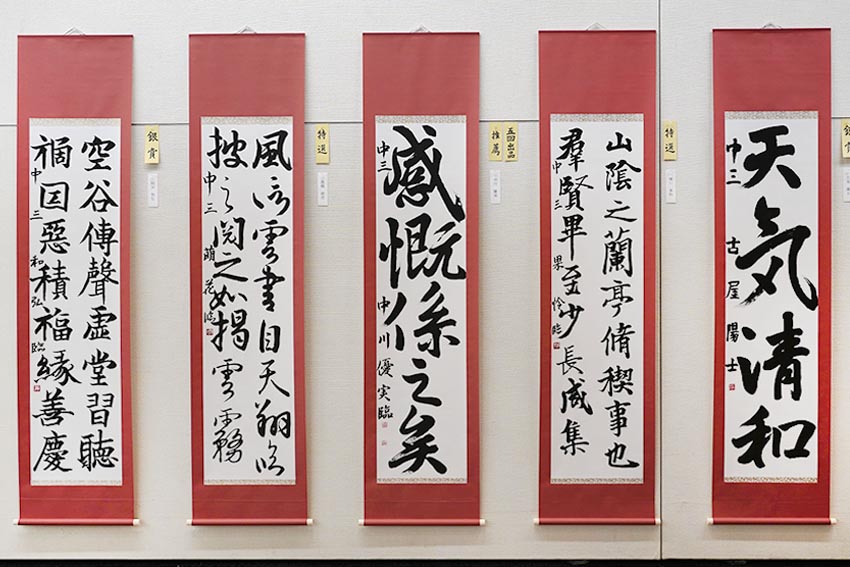 空谷傳聲虚堂習聽
禍因惡積福縁善慶
中三 和弘臨
銀賞
風信雲書自天翔臨
披之閲之如揭雲霧
中三 萌花臨
特選
感慨係之矣
中三 中川優実臨
五回出品
推薦
山陰之蘭亭脩稧事也
羣賢畢至少長咸集
中三 果怜臨
特選
天気清和
中三 古屋陽士
銀賞